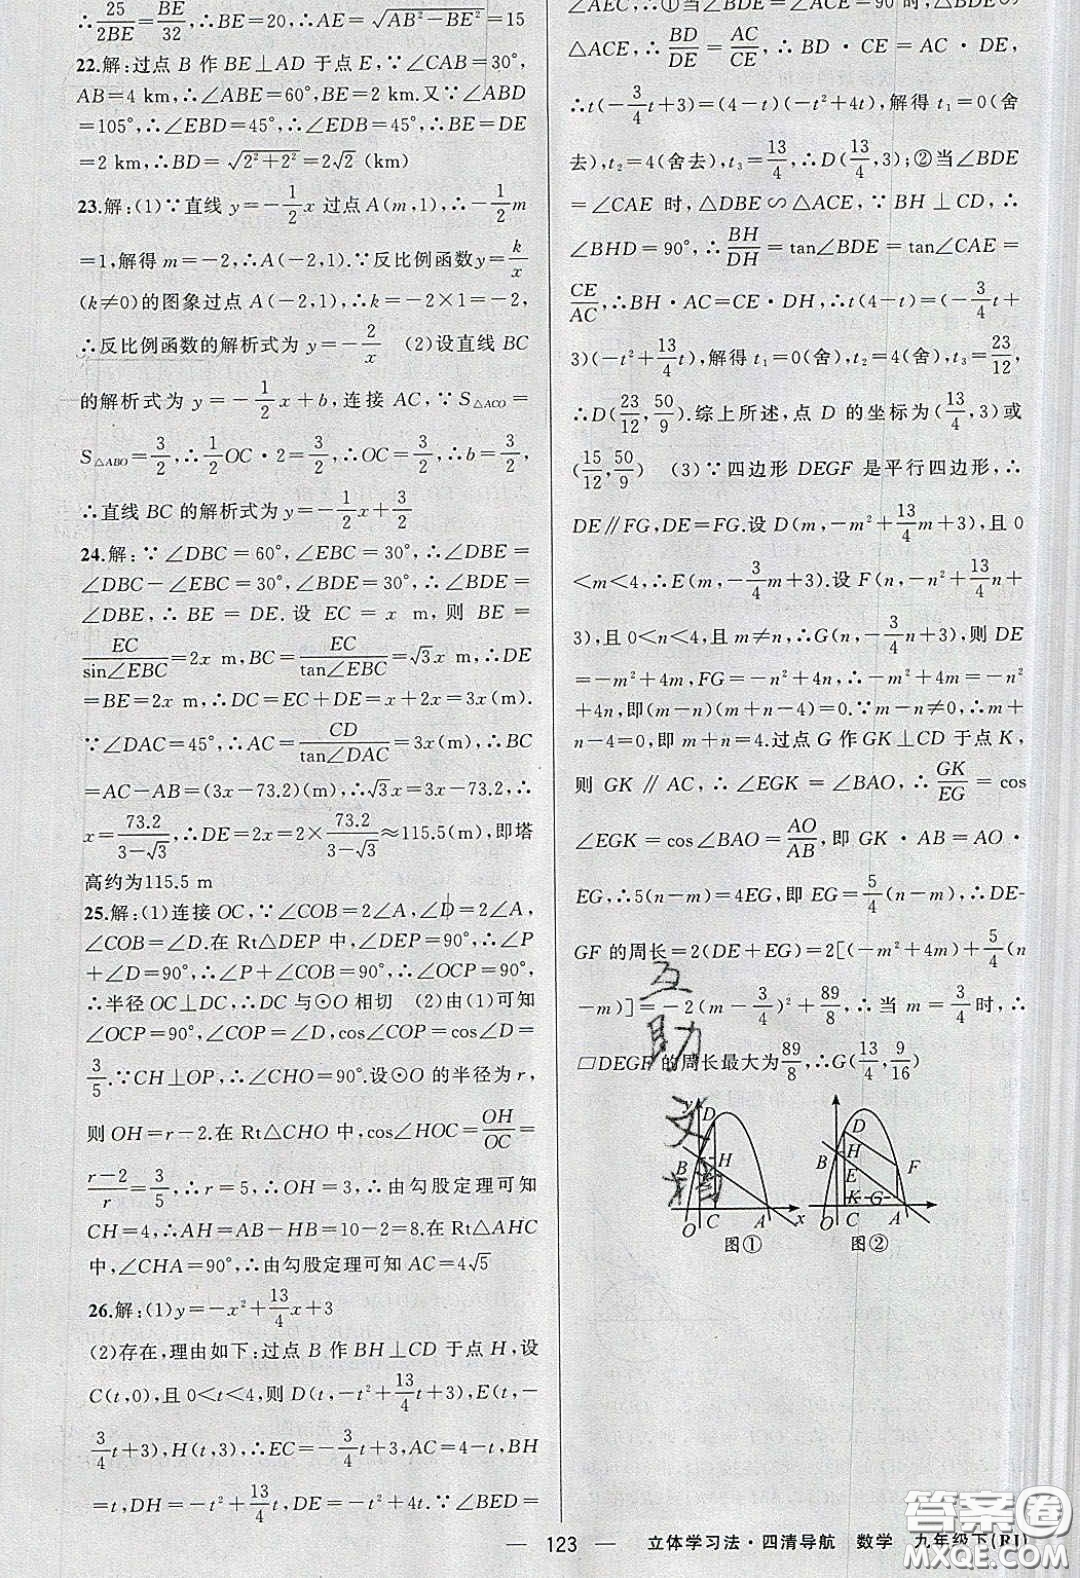 ∴25/2BE=BE/32,∴BE=20,∴AE=√(AB²-BE²)=15
22.解:过点 B 作 BE⊥AD 于点 E,∵∠CAB=30°,
AB=4 km,∴∠ABE=60°,BE=2 km.又∵∠ABD
=105°,∴∠EBD=45°,∴∠EDB=45°,∴BE=DE
=2 km,∴BD=√(2²+2²)=2√2 (km)
23.解:(1)∵直线 y=-1/2x 过点 A(m,1),∴-1/2m
=1,解得 m=-2,∴A(-2,1).∵反比例函数y=k/x
(k≠0)的图象过点 A(-2,1),∴k=-2×1=-2,
∴反比例函数的解析式为 y=-2/x (2)设直线 BC
的解析式为 y=-1/2x+b,连接 AC,∵S△ACO=
S△ABO=3/2,∴1/2OC·2=3/2,∴OC=3/2,∴b=3/2,
∴直线 BC 的解析式为 y=-1/2x+3/2
24.解:∵∠DBC=60°,∠EBC=30°,∴∠DBE=
∠DBC-∠EBC=30°,∠BDE=30°,∴∠BDE=
∠DBE,∴BE=DE.设 EC=x m,则 BE=
EC/sin∠EBC=2x m,BC=EC/tan∠EBC=√3x m,∴DE
=BE=2x m,∴DC=EC+DE=x+2x=3x(m).
∵∠DAC=45°,∴AC=CD/tan∠DAC=3x(m),∴BC
=AC-AB=(3x-73.2)(m),∴√3x=3x-73.2,∴
x=73.2/(3-√3),∴DE=2x=2×73.2/(3-√3)≈115.5(m),即塔
高约为115.5 m
25.解:(1)连接 OC,∵∠COB=2∠A,∠D=2∠A,
∠COB=∠D.在 Rt△DEP 中,∠DEP=90°,∴∠P
+∠D=90°,∴∠P+∠COB=90°,∴∠OCP=90°,
∴半径 OC⊥DC,∴DC 与⊙O 相切 (2)由(1)可知
∠OCP=90°,∠COP=∠D,cos∠COP=cos∠D=
3/5.∵CH⊥OP,∴∠CHO=90°.设⊙O 的半径为 r,
则 OH=r-2.在 Rt△CHO 中,cos∠HOC=OH/OC=
(r-2)/r=3/5,∴r=5,∴OH=3,∴由勾股定理可知
CH=4,∴AH=AB-HB=10-2=8.在 Rt△AHC
中,∠CHA=90°,∴由勾股定理可知 AC=4√5
26.解:(1)y=-x²+13/4x+3
(2)存在,理由如下:过点 B 作 BH⊥CD 于点 H,设
C(t,0),且 0<t<4,则 D(t,-t²+13/4t+3),E(t,-
3/4t+3),H(t,3),∴EC=-3/4t+3,AC=4-t,BH
=t,DH=-t²+13/4t,DE=-t²+4t.∵∠BED=
∠AEC,∴①当∠BDE=∠ACE=90°时,△BDE∽
△ACE,∴BD/DE=AC/CE,∴BD·CE=AC·DE,
∴t(-3/4t+3)=(4-t)(-t²+4t),解得 t₁=0(舍
去),t₂=4(舍去),t₃=13/4,∴D(13/4,3);②当∠BDE
=∠CAE 时,△DBE∽△ACE,∵BH⊥CD,∴
∠BHD=90°,∴BH/DH=tan∠BDE=tan∠CAE=
CE/AC,∴BH·AC=CE·DH,∴t(4-t)=(-3/4t+
3)(-t²+13/4t),解得 t₁=0(舍),t₂=4(舍),t₃=23/12,
∴D(23/12,50/9).综上所述,点 D 的坐标为(13/4,3)或
(15/12,50/9) (3)∵四边形 DEGF 是平行四边形,∴
DE∥FG,DE=FG.设 D(m,-m²+13/4m+3),且 0
<m<4,∴E(m,-3/4m+3).设 F(n,-n²+13/4n+
3),且 0<n<4,且 m≠n,∴G(n,-3/4n+3),则 DE
=-m²+4m,FG=-n²+4n,∴-m²+4m=-n²
+4n,即(m-n)(m+n-4)=0.∵m-n≠0,∴m+
n-4=0,即 m+n=4.过点 G 作 GK⊥CD 于点 K,
则 GK∥AC,∴∠EGK=∠BAO,∴GK/EG=cos
∠EGK=cos∠BAO=AO/AB,即 GK·AB=AO·
EG,∴5(n-m)=4EG,即 EG=5/4(n-m),∴□DE-
GF 的周长=2(DE+EG)=2[(-m²+4m)+5/4(n
-m)]=-2(m-3/4)²+89/8,∴当 m=3/4时,∴
□DEGF 的周长最大为89/8,∴G(13/4,9/16)
互助文精
y D B H E O C A x
图①
D B H E F K G O C A
图②
123 立体学习法·四清导航 数学 九年级下(RJ)
答案圈
MXQE.COM